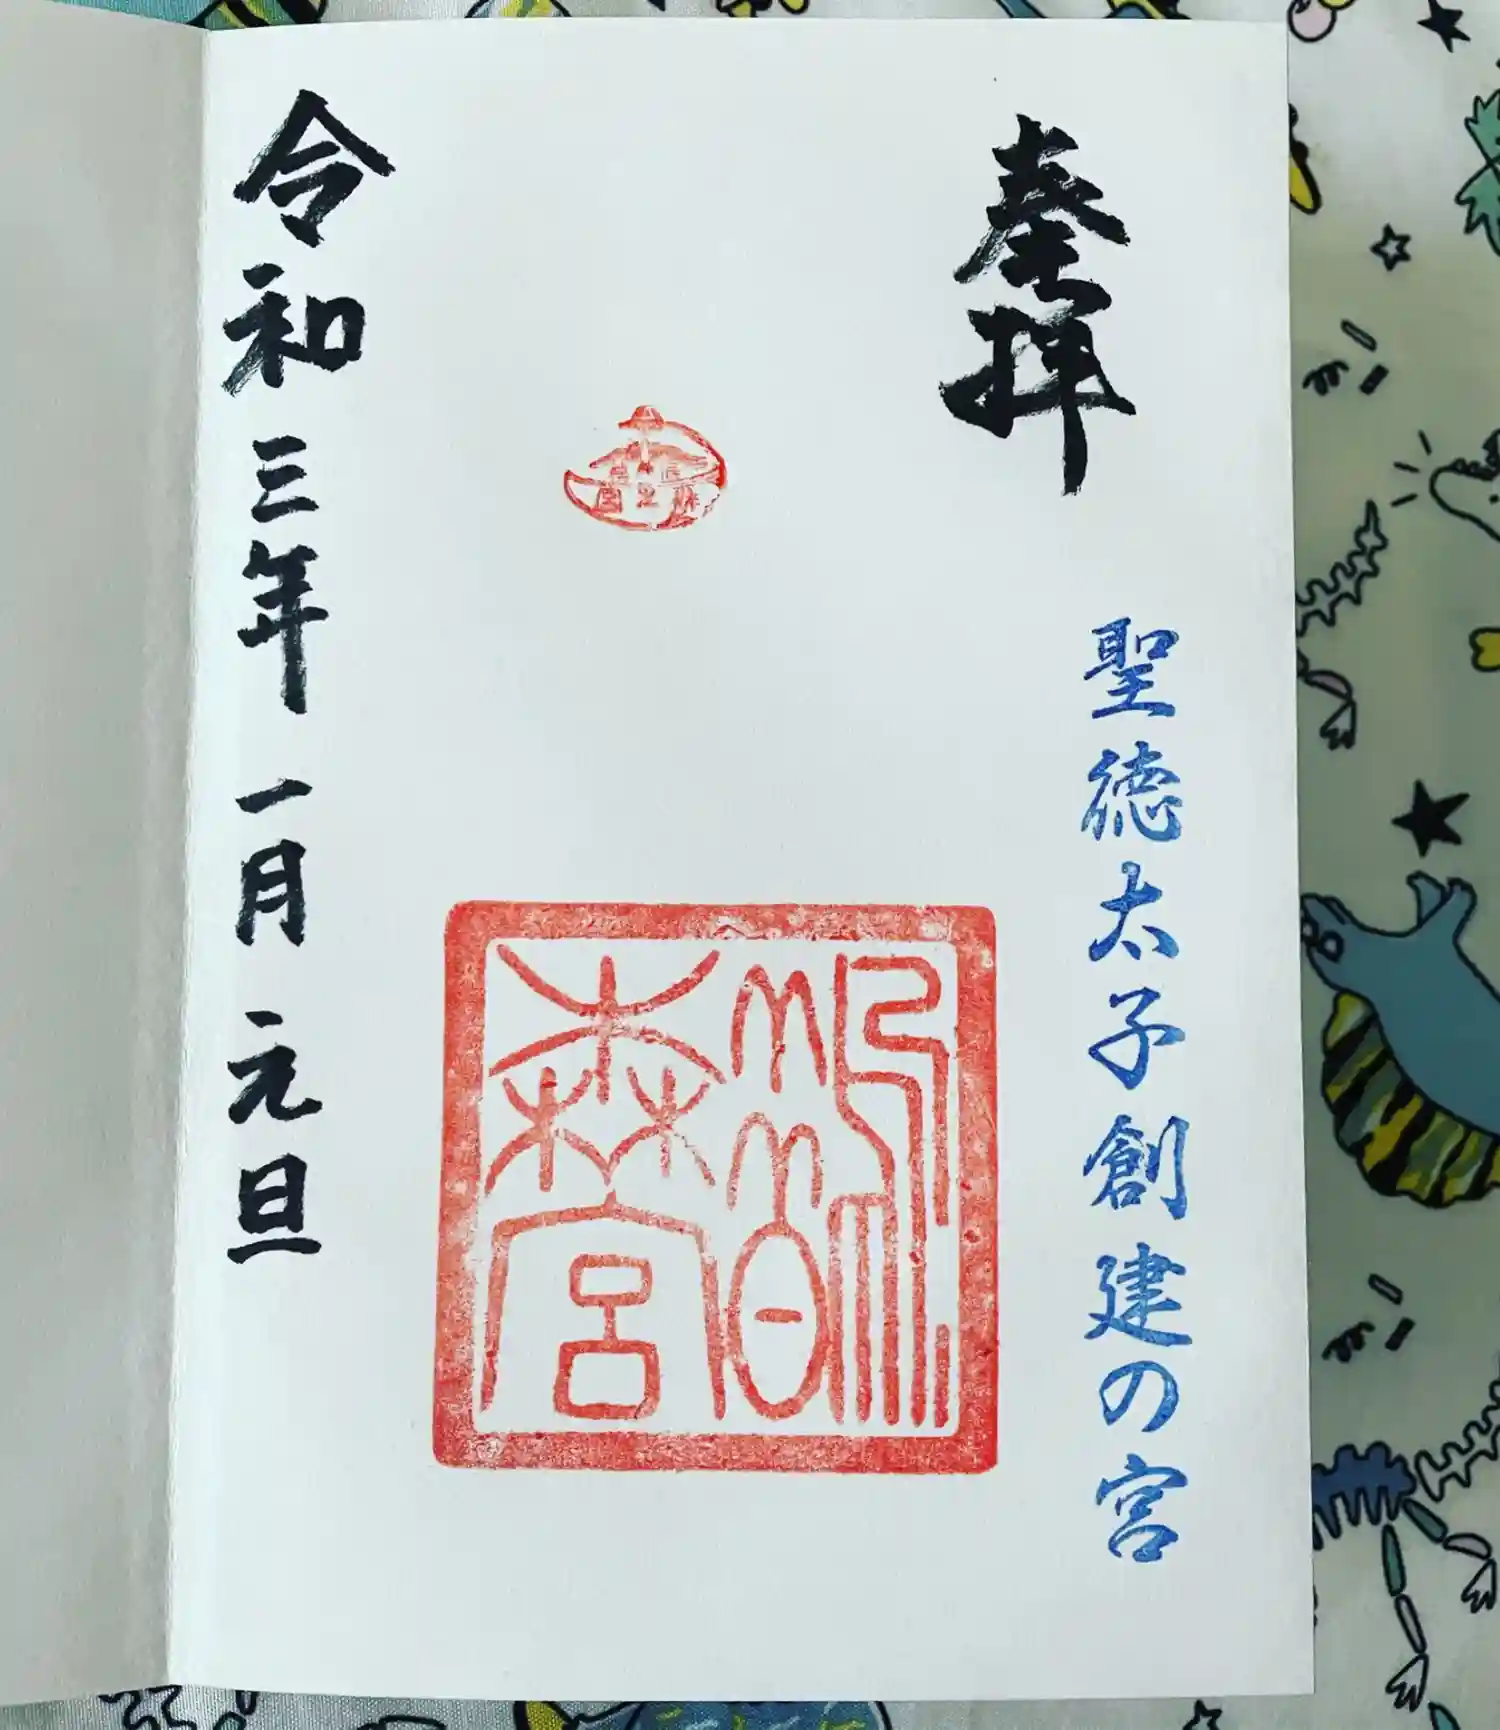 奉拝
聖徳太子創建の宮
鵲
森宮
令和三年一月元旦